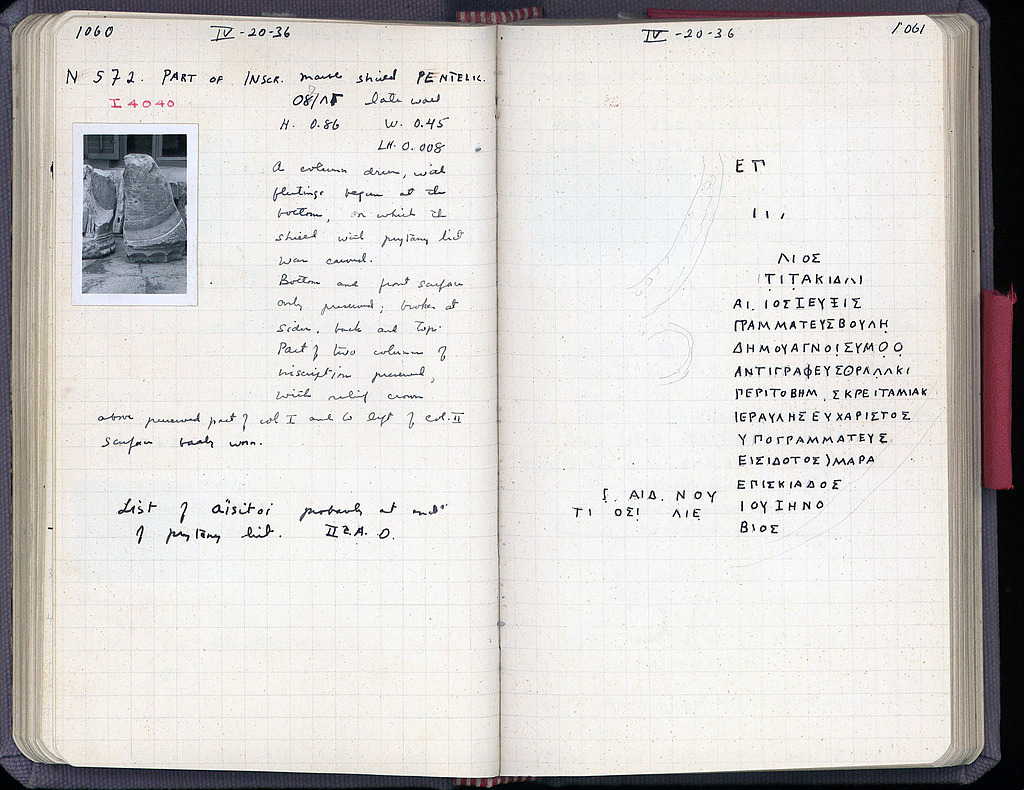 1060 IV-20-36
N 572. PART OF INSCR. marble shield PENTELIC.
I 4040
08/ΛΓ late wall
H. 0.86 W. 0.45
LH. 0.008
A column drum, with
flutings begun at the
bottom, on which the
shield with prytany list
was carved.
Bottom and front surface
only preserved; broken at
sides, back and top.
Part of two columns of
inscription preserved,
with relief crown
above preserved part of col I and to left of col. II
Surface badly worn.
List of ἀΐσιτοι probably at end
of prytany list. II c. A.D.
IV-20-36 1061
ΕΓ
ΙΙ,
ΛΙΟΣ
ΤΙΤΑΚΙΔΛΙ
ΑΙ. ΙΟΣΙΕΥΞΙΣ
ΓΡΑΜΜΑΤΕΥΣΒΟΥΛΗ
ΔΗΜΟΥΑΓΝΟΙΣΥΜΟΟ
ΑΝΤΙΓΡΑΦΕΥΣΘΡΛΛΛΚΙ
ΠΕΡΙΤΟΒΗΜ . ΣΚΡΕΙΤΑΜΙΑΚ
ΙΕΡΑΥΛΗΣΕΥΧΑΡΙΣΤΟΣ
ΥΠΟΓΡΑΜΜΑΤΕΥΣ
ΕΙΣΙΔΟΤΟΣ)ΜΑΡΑ
ΕΠΙΣΚΙΑΔΟΣ
Σ. ΑΙΔ. ΝΟΥ ΙΟΥΣΗΝΟ
ΤΙ ΟΣΙ ΛΙΕ ΒΙΟΣ